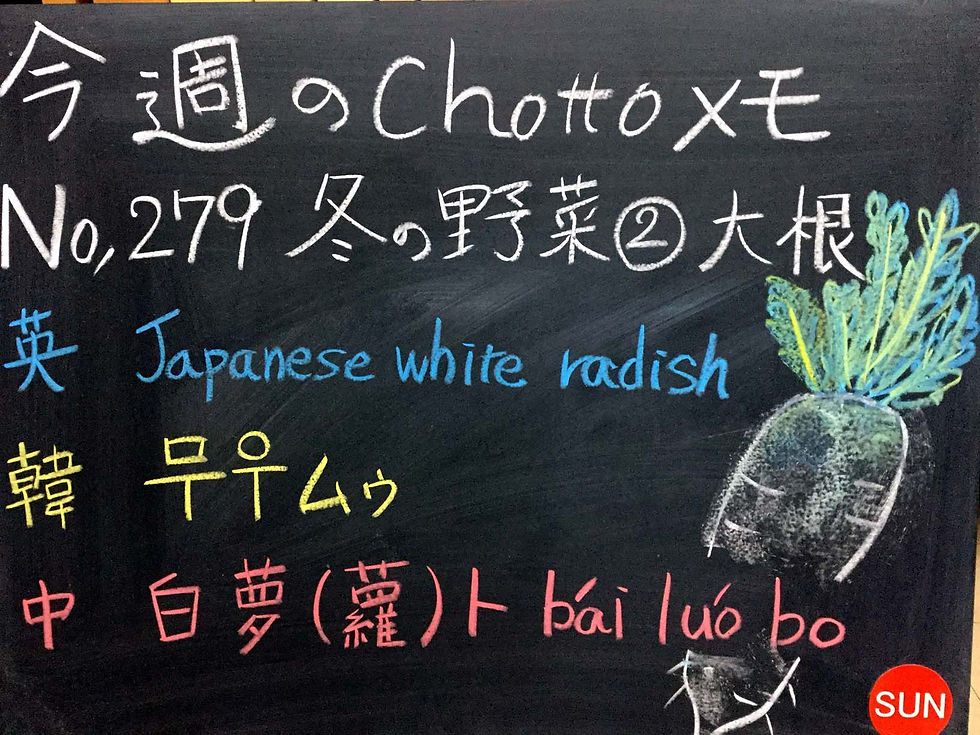 今週のChottoメモ
No,279 冬の野菜②大根
英 Japanese white radish
韓 무우 ムゥ
中 白萝(蘿)卜 bái luó bo
SUN